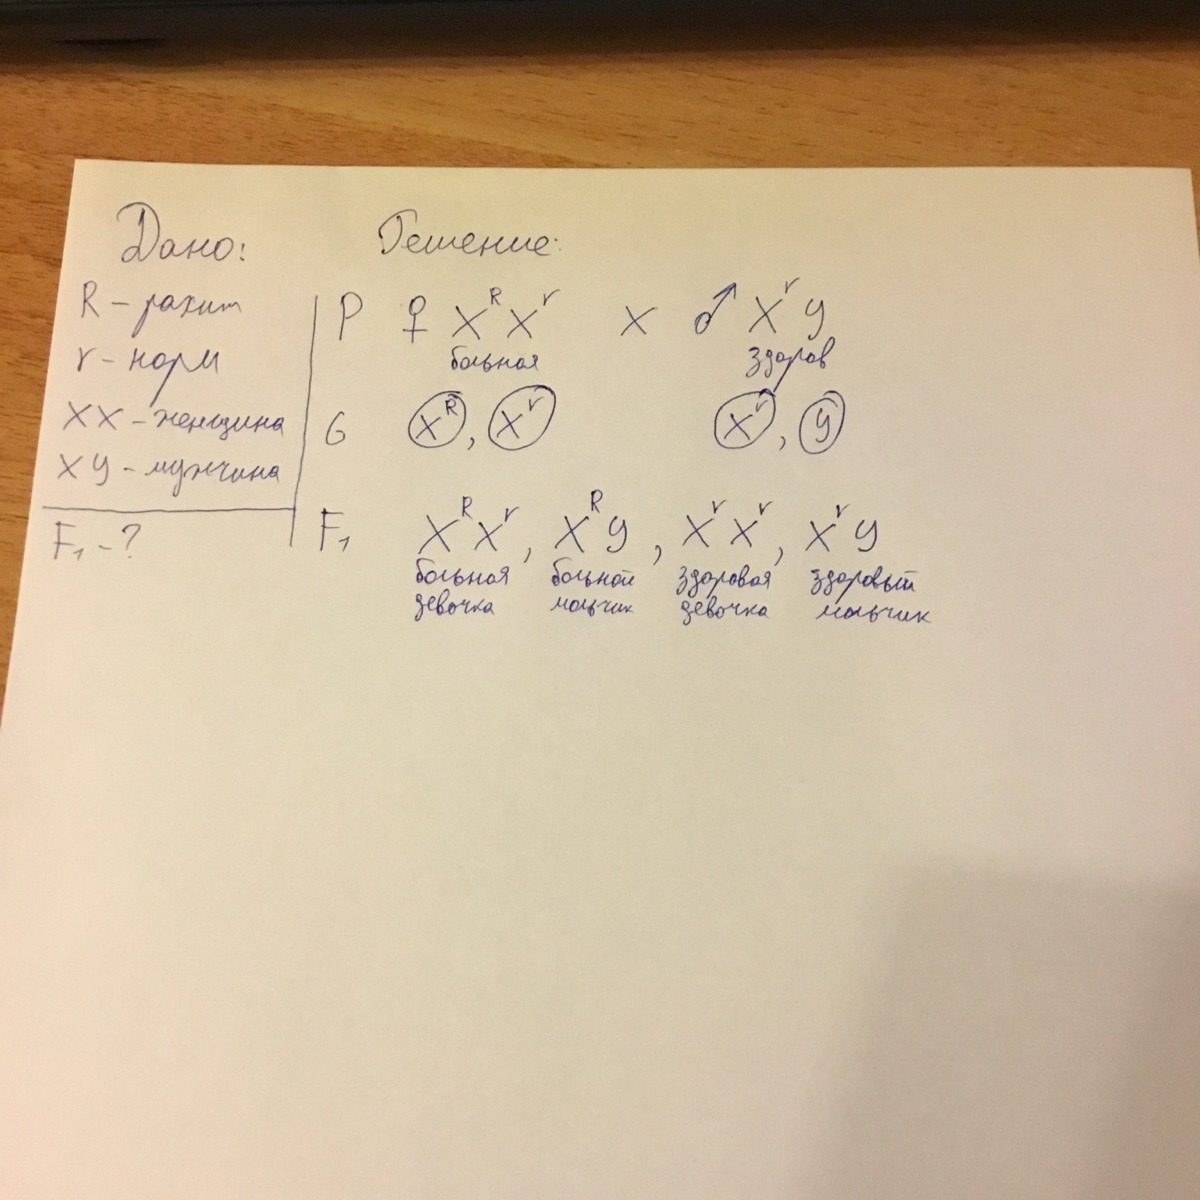 Дано: Решение:
R - рахит P ♀ X^R X^r × ♂ X^r y
r - норм больная здоров
XX - женщина G X^R, X^r X^r, y
Xy - мужчина
F₁ - ? F₁ X^R X^r, X^R y, X^r X^r, X^r y
больная больной здоровая здоровый
девочка мальчик девочка мальчик